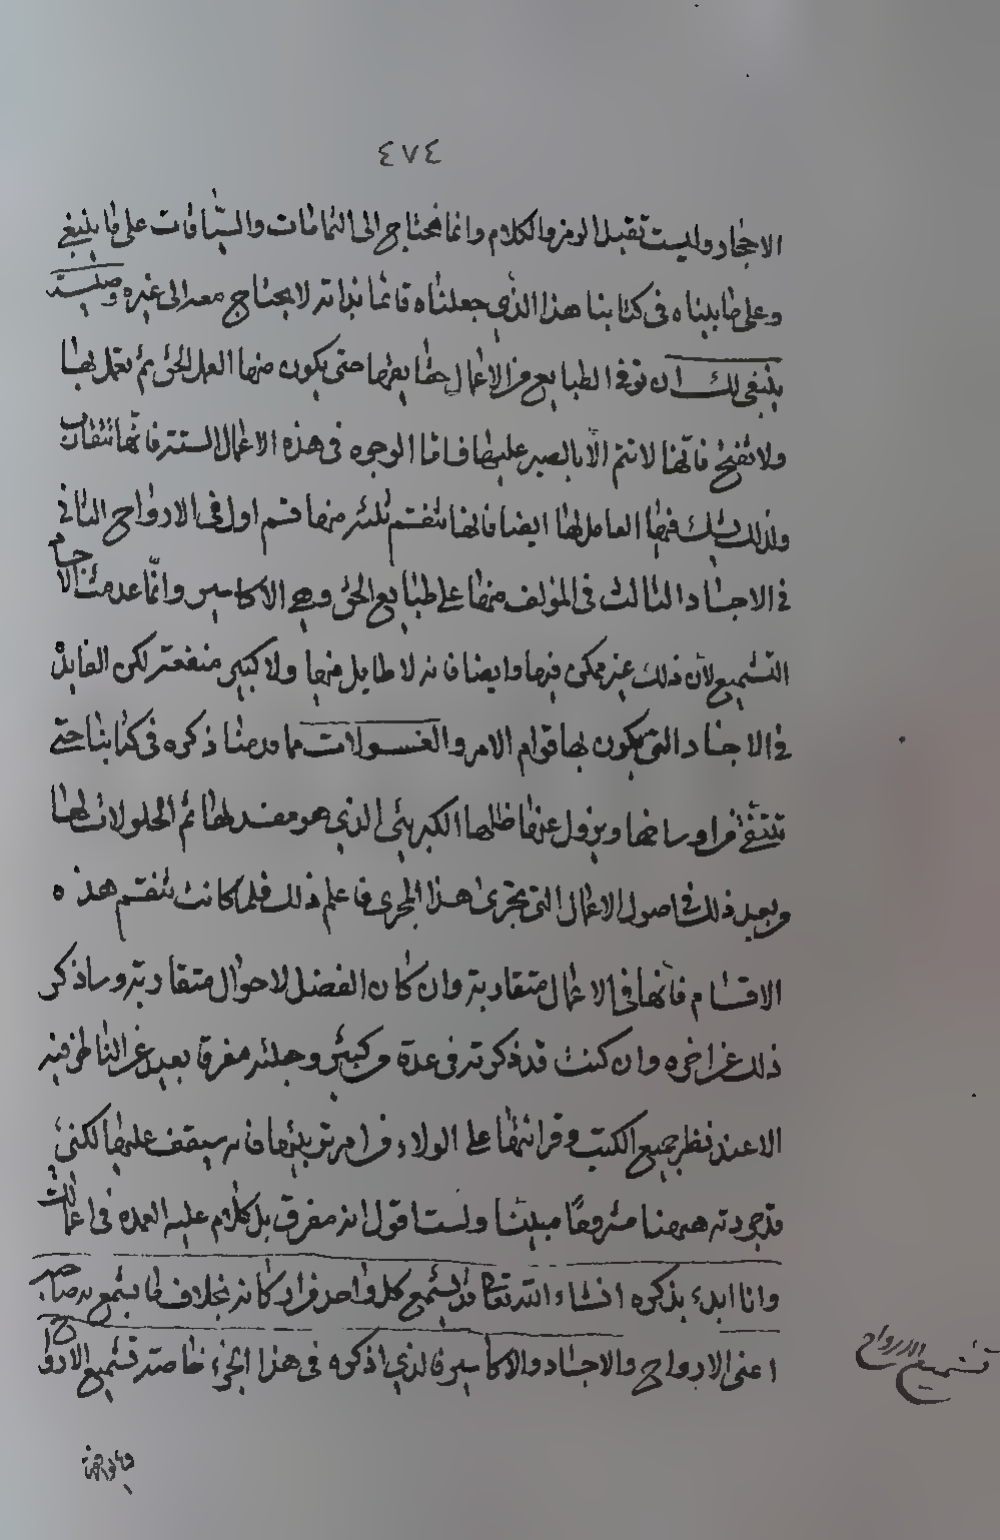 ٤٧٤
الاحجار وليست تقبل الرمز والكلام وانما نحتاج الى التمامات والسياقات على ما ينبغي
وعلى ما بيناه في كتابنا هذا الذي جعلناه قائما بذاته لا يحتاج معه الى غيره
ينبغي لك ان توفي الطبايع من الاعمال حقها حتى يكون منها العمل الحق ثم تعمل بها
ولا تضجر فانها لا تتم الا بالصبر عليها فاما الوجوه في هذه الاعمال الستة فانها
ولذلك العامل لها ايضا فانها تنقسم ثلثة منها قسم اول في الارواح الثاني
في الاجساد الثالث في المؤلف منها على طبايع الحق وهي الاكاسير وانما عدمنا
التشميع لان ذلك غير ممكن فيها وايضا فانه لا طايل منها ولا كبير منفعة لكن الفايدة
في الاجساد التي يكون بها قوام الامر والغسولات مما قدمنا ذكره في كتابنا حتى
تنتقى من اوساخها ويزول عنها ظلها الكبريتي الذي هو مفسد لها ثم الحلولات لها
وبعد ذلك في اصول الاعمال التي تجرى هذا المجرى فاعلم ذلك فلما كانت تنقسم هذه
الاقسام فانها في الاعمال متقاربة وان كان الفضل لاحوال متقاربة وساذكر
ذلك عن اخره وان كنت قد ذكرته في عدة من كتبي وجعلته مفرقا بعيد عن الناظر فيه
الا عند نظر جميع الكتب وقرائتها على الولاء فانه سيقف عليها لكني
قد جردته ههنا مشروحا مبينا ولست اقول انه مفرق بل كلام عليه العمدة في
وانا ابدء بذكره انشاء الله تعالى
اعنى الارواح والاجساد والاكاسير فالذي اذكره في هذا الجزء خاصة تشميع الارواح
تشميع الارواح